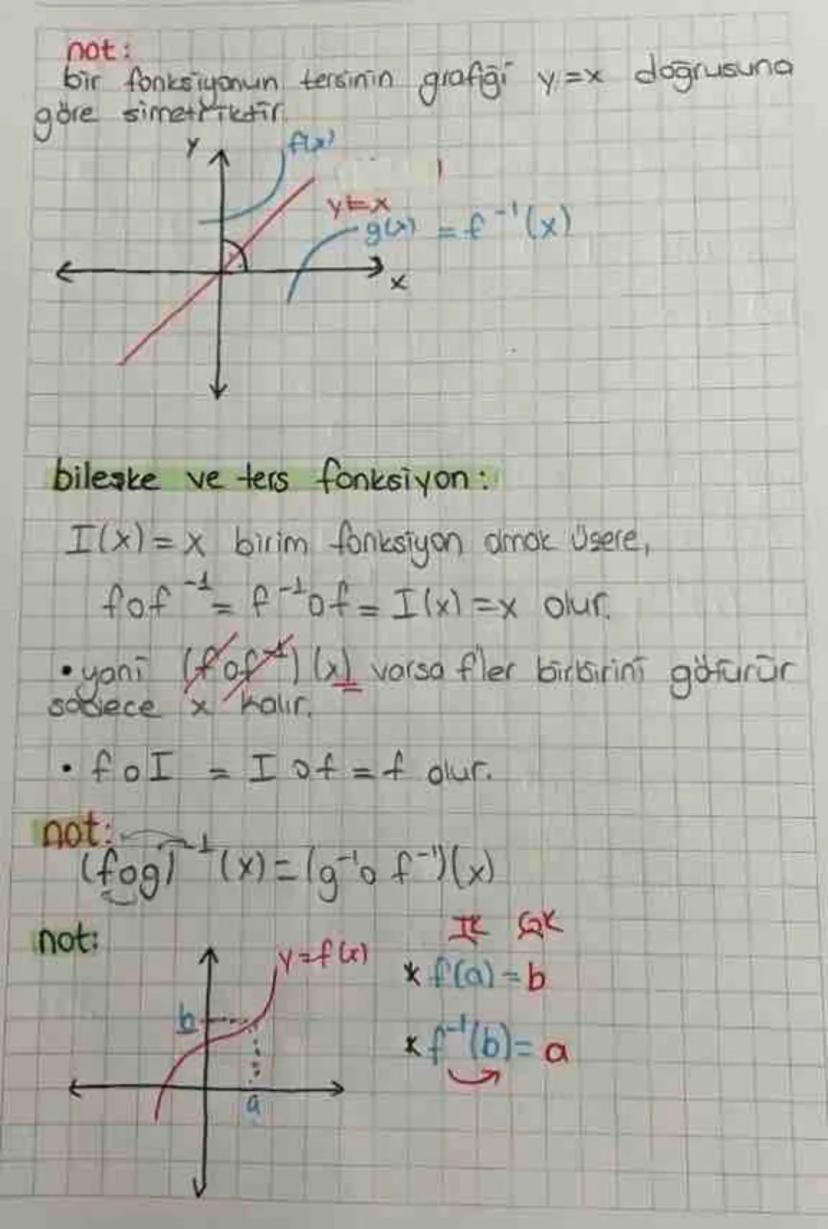 not:
bir fonksiyonun tersinin grafiği y=x doğrusuna
göre simetriktir.
y
f(x)
y=x
g(x) = f⁻¹(x)
x
bileşke ve ters fonksiyon:
I(x) = x birim fonksiyon olmak üsere,
fof⁻¹ = f⁻¹of = I(x) = x olur.
• yani (fof⁻¹)(x) varsa f'ler birbirini götürür
sadece x kalır.
• foI = Iof = f olur.
not:
(fog)⁻¹(x) = (g⁻¹o f⁻¹)(x)
not:
y=f(x)
b
a
İK GK
* f(a) = b
* f⁻¹(b) = a